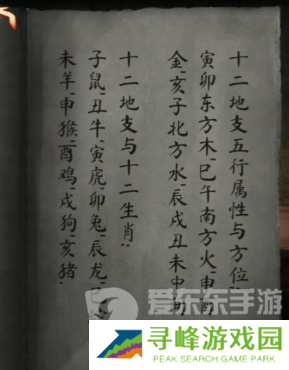 十二地支五行属性与方位
寅卯东方木、巳午南方火、申酉
金、亥子北方水、辰戌丑未中
十二地支与十二生肖
子鼠、丑牛、寅虎、卯兔、辰龙、巳
未羊、申猴、酉鸡、戌狗、亥猪
爱东东手游
寻峰游戏园
PEAK SEARCH GAME PARK